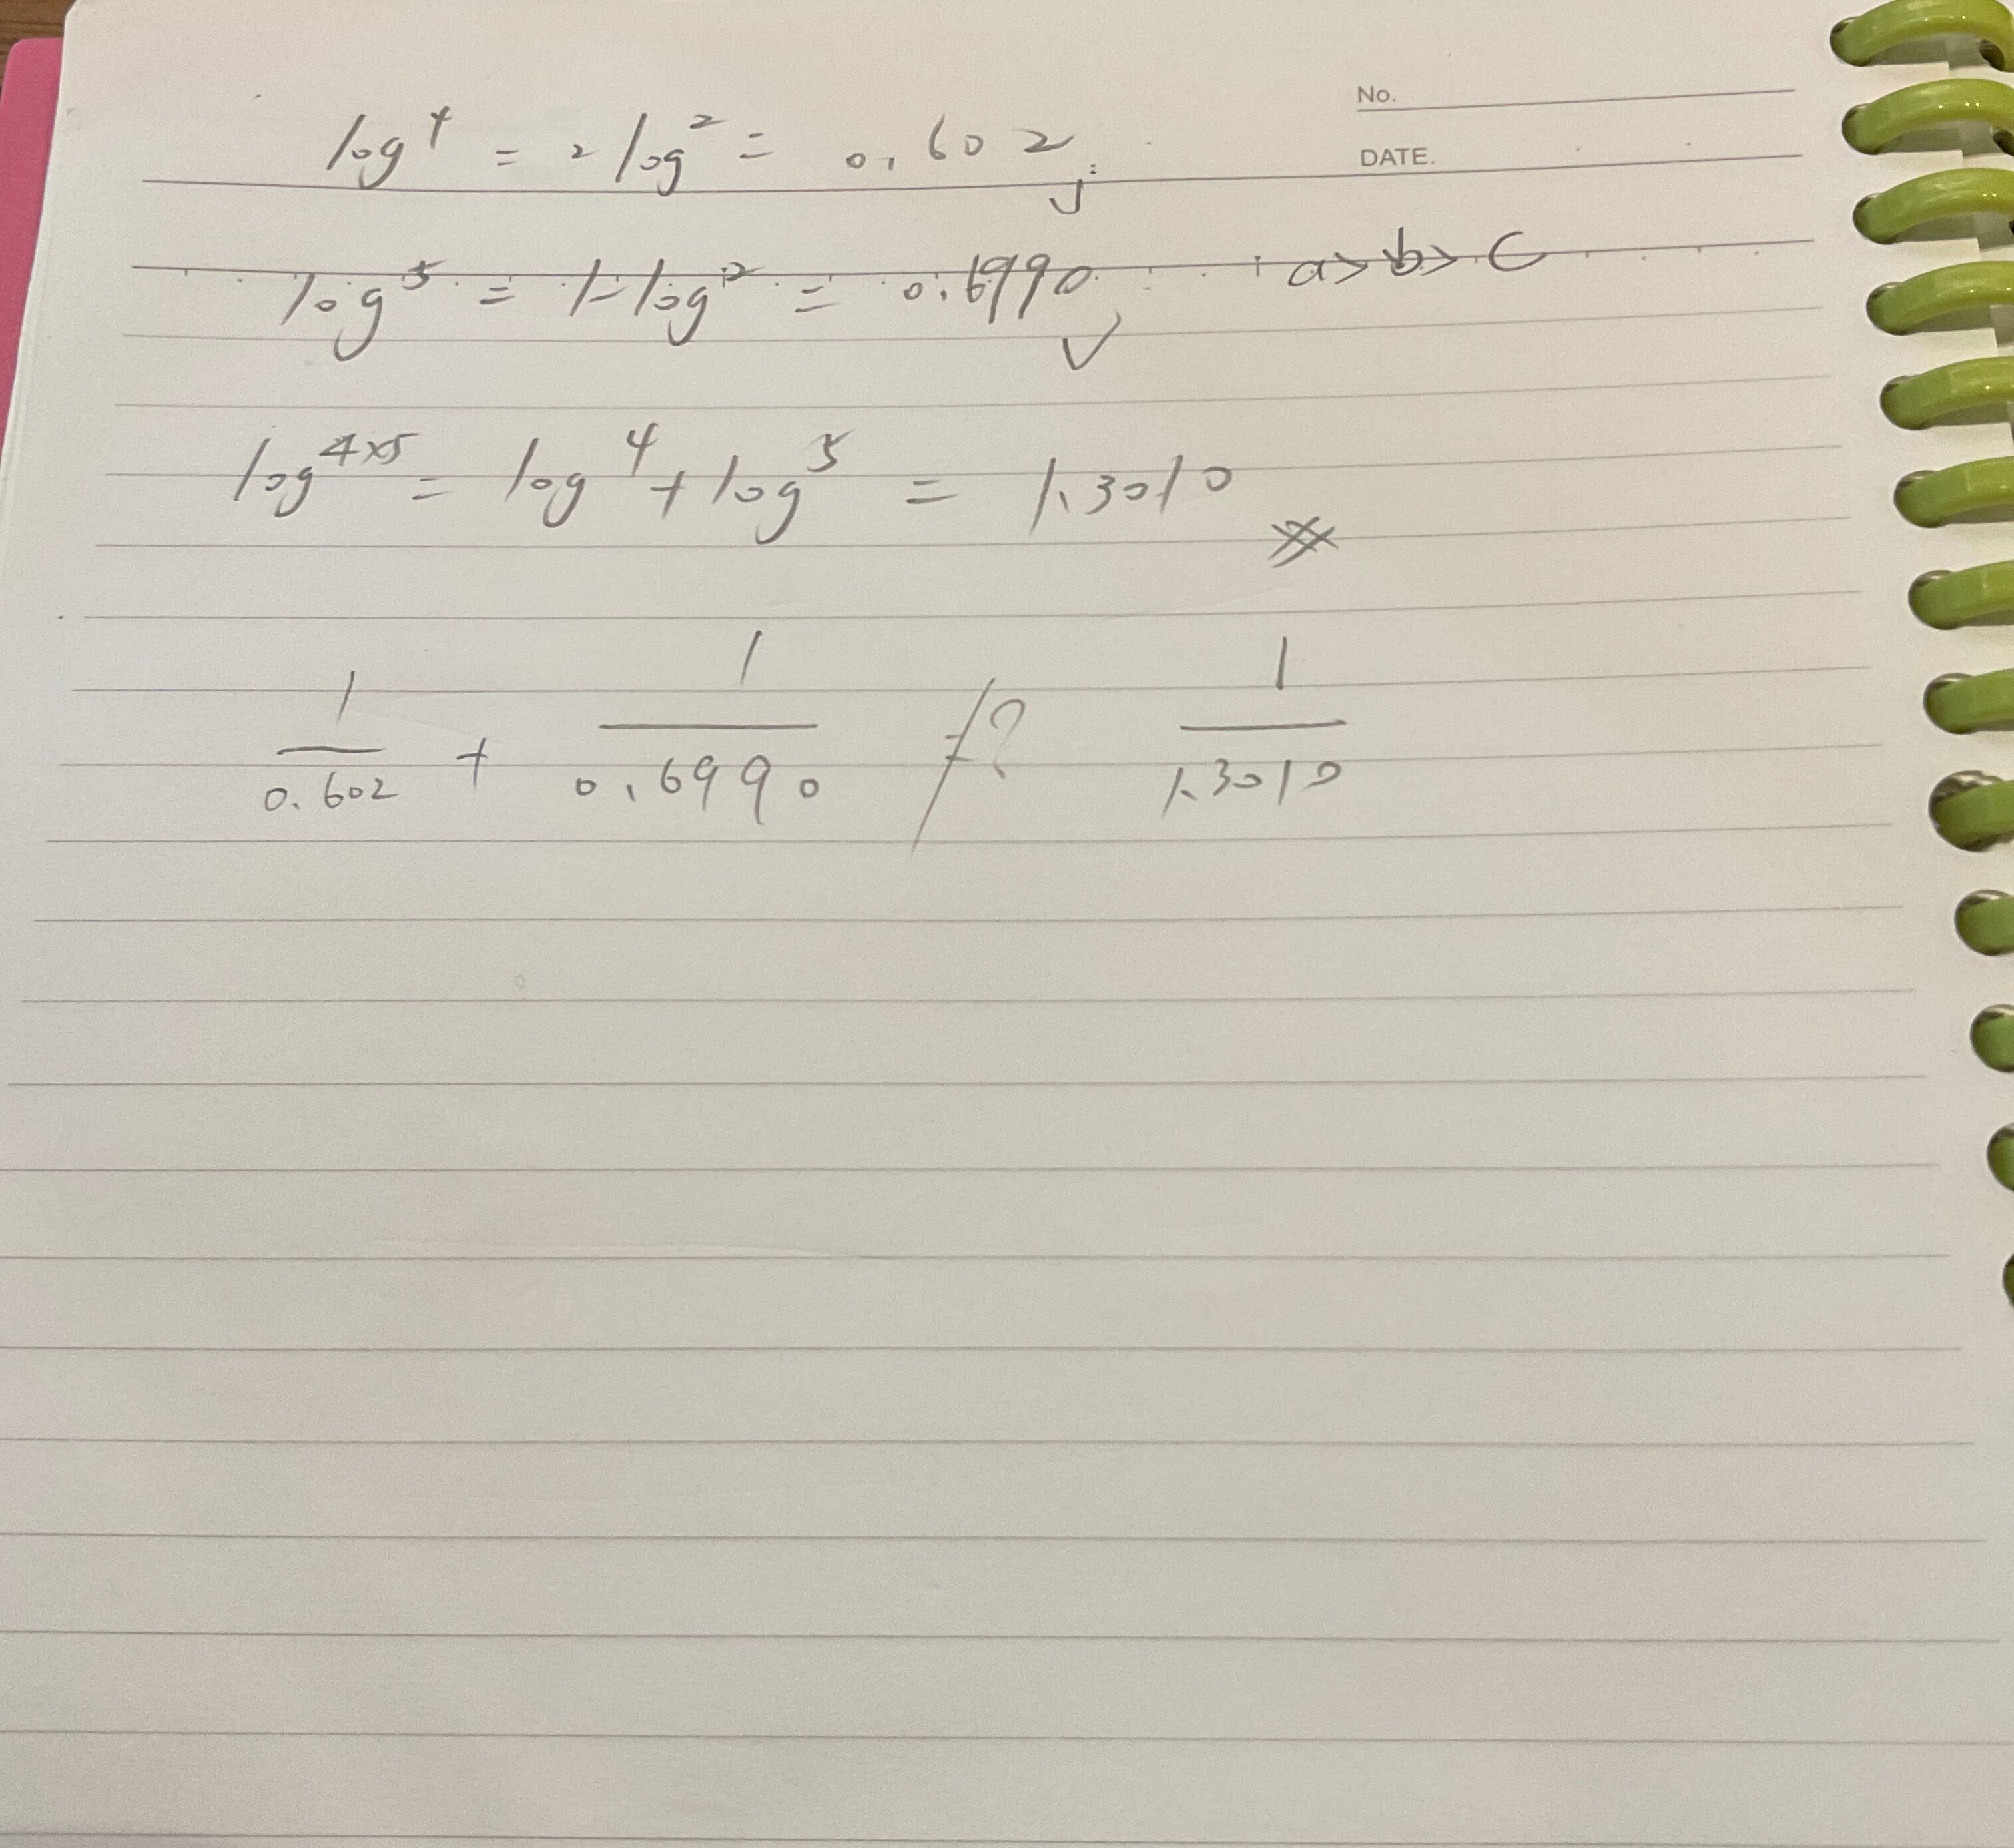 No.
DATE.
log⁴ = 2 log² = 0.602
log⁵ = 1-log² = 0.6990 a>b>c
log⁴ˣ⁵ = log⁴ + log⁵ = 1.3010
1/0.602 + 1/0.6990 ≠? 1/1.3010